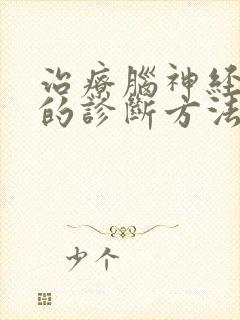 治療腦神経
的診斷方法
少个